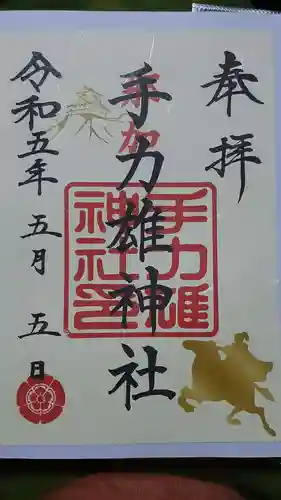 奉拝
手力雄神社
令和五年五月五日
手力雄
神社印